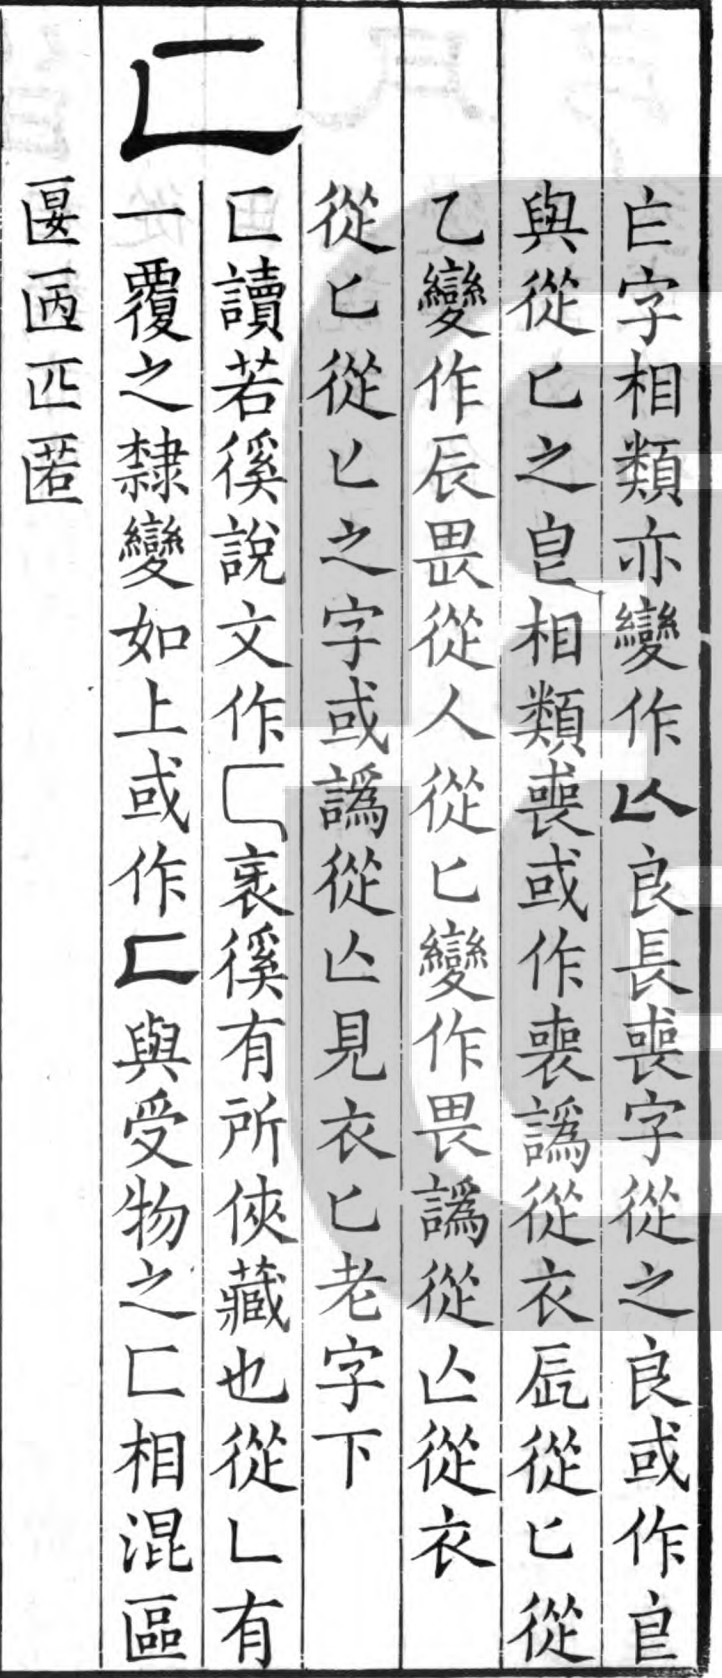 亡字相類亦變作𠅃良長喪字從之良或作皀
與從匕之皀相類喪或作喪譌從衣辰從匕從
乙變作辰畏從人從匕變作畏譌從亾從衣
從匕從匕之字或譌從亾見衣匕老字下
匸
匸讀若徯說文作匸衺徯有所俠藏也從乚有
一覆之隸變如上或作匚與受物之匚相混區
匽匧匹匿